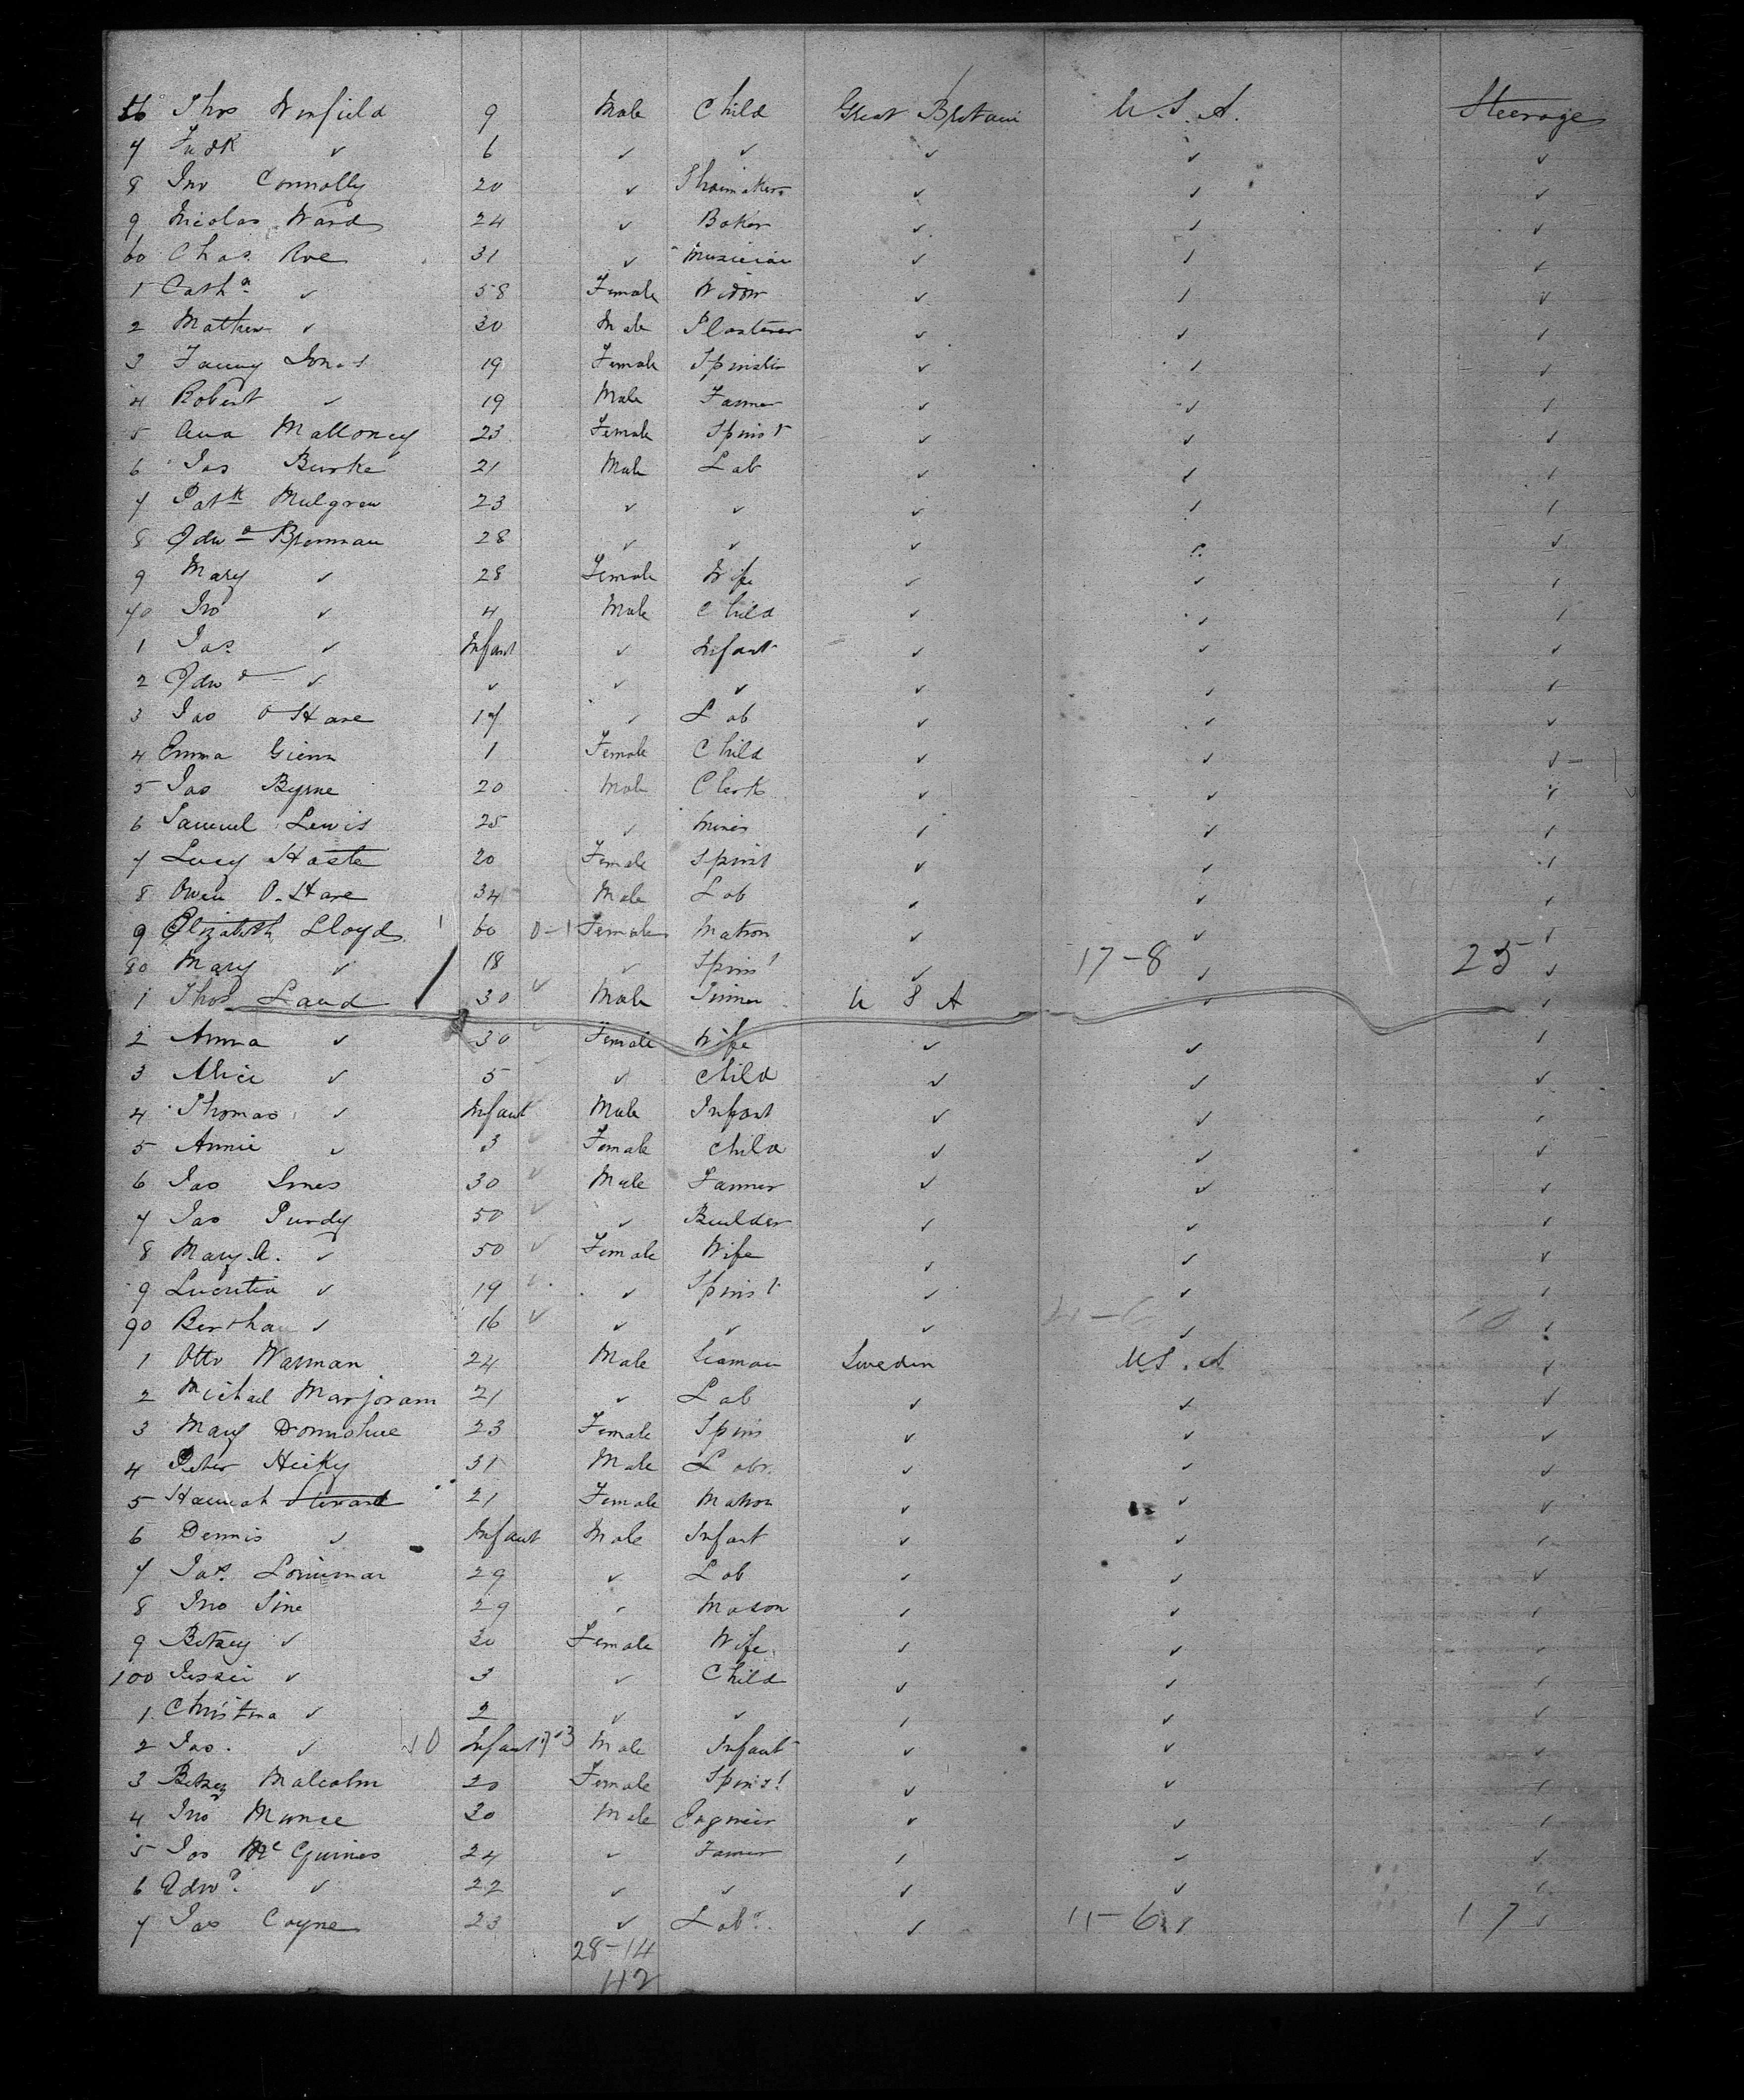 56 Thos Winfield 9 Male Child Great Britain U.S.A. Steerage
7 Fredk ✓ 6 ✓ ✓ ✓ ✓ ✓
8 Jno Connolly 20 ✓ Shoemaker ✓ ✓ ✓
9 Nicolas Ward 24 ✓ Baker ✓ ✓ ✓
60 Chas Roe 31 ✓ Musician ✓ ✓ ✓
1 Catha ✓ 58 Female Widow ✓ ✓ ✓
2 Mathew ✓ 30 Male Plasterer ✓ ✓ ✓
3 Fanny Jones 19 Female Spinster ✓ ✓ ✓
4 Robert ✓ 19 Male Farmer ✓ ✓ ✓
5 Ann Malloney 23 Female Spinst ✓ ✓ ✓
6 Jas Burke 21 Male Lab ✓ ✓ ✓
7 Patk Mulgrew 23 ✓ ✓ ✓ ✓ ✓
8 Edwd Brennan 28 ✓ ✓ ✓ ✓ ✓
9 Mary ✓ 28 Female Wife ✓ ✓ ✓
70 Jno ✓ 4 Male Child ✓ ✓ ✓
1 Jas ✓ Infant ✓ Infant ✓ ✓ ✓
2 Edwd ✓ ✓ ✓ ✓ ✓ ✓ ✓
3 Jas O Hare 17 ✓ Lab ✓ ✓ ✓
4 Emma Glenn 1 Female Child ✓ ✓ ✓
5 Jas Byrne 20 Male Clerk ✓ ✓ ✓
6 Samuel Lewis 25 ✓ Miner ✓ ✓ ✓
7 Lucy Haste 20 Female Spinst ✓ ✓ ✓
8 Owen O. Hare 34 Male Lab ✓ ✓ ✓
9 Elizabeth Lloyd 60 0-1 Female Matron ✓ ✓ ✓
80 Mary ✓ 18 ✓ Spinst ✓ 17-8 ✓ 25 ✓
1 Thos Land 30 ✓ Male U S A ✓ ✓
2 Anna ✓ 30 ✓ Female Wife ✓ ✓ ✓
3 Alice ✓ 5 ✓ Child ✓ ✓ ✓
4 Thomas ✓ Infant Male Infant ✓ ✓ ✓
5 Annie ✓ 3 ✓ Female Child ✓ ✓ ✓
6 Jas 30 ✓ Male Farmer ✓ ✓ ✓
7 Jas Purdy 50 ✓ ✓ Builder ✓ ✓ ✓
8 Mary A. ✓ 50 ✓ Female Wife ✓ ✓ ✓
9 Lucretia ✓ 19 ✓ ✓ Spinst ✓ ✓ ✓
90 Bertha ✓ 16 ✓ ✓ ✓ ✓ 4-6 ✓ 10 ✓
1 Otto Warman 24 Male Seaman Sweden US.A ✓
2 Michael Marjoram 21 ✓ Lab ✓ ✓ ✓
3 Mary Donnohue 23 Female Spins ✓ ✓ ✓
4 Peter Hicky 31 Male Labr. ✓ ✓ ✓
5 Hannah Stewart 21 Female Matron ✓ ✓ ✓
6 Dennis ✓ Infant Male Infant ✓ ✓ ✓
7 Jas. Lorimmar 29 ✓ Lab ✓ ✓ ✓
8 Jno Sine 29 ✓ Mason ✓ ✓ ✓
9 Betsey ✓ 30 Female Wife ✓ ✓ ✓
100 Jessie ✓ 3 ✓ Child ✓ ✓ ✓
1 Christina ✓ 2 ✓ ✓ ✓ ✓ ✓
2 Jas. ✓ Infant Male Infant ✓ ✓ ✓
3 Betsey Malcolm 20 Female Spinst ✓ ✓ ✓
4 Jno Munce 30 Male Engineer ✓ ✓ ✓
5 Jas Mc Guines 24 ✓ Farmer ✓ ✓ ✓
6 Edwd. ✓ 22 ✓ ✓ ✓ ✓ ✓
7 Jas Coyne 23 ✓ Labr. ✓ 11-6 ✓ 17 ✓
28-14
42